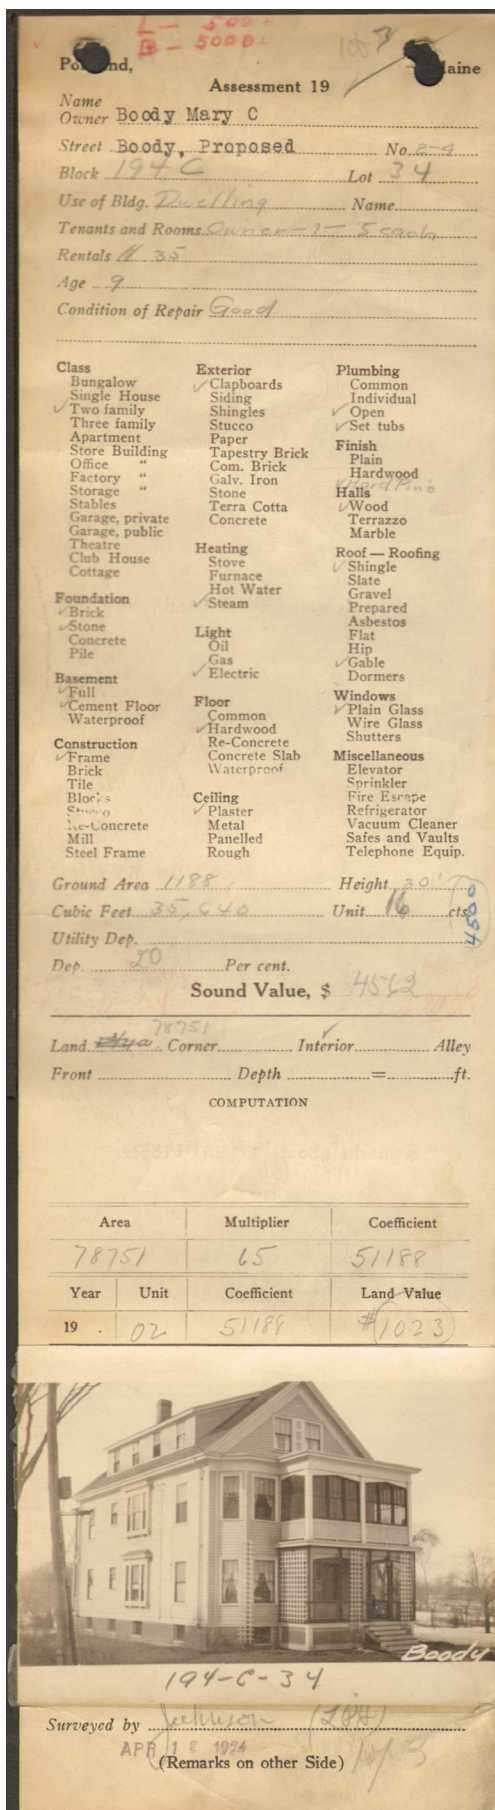 L - 500+
B - 5000+
Portland, Maine
Assessment 19
Name
Owner Boody Mary C
Street Boody, Proposed No. 2-4
Block 194 C Lot 34
Use of Bldg. Dwelling Name
Tenants and Rooms Owner-1-5 each
Rentals 35
Age 9
Condition of Repair Good
Class
Bungalow
Single House
✓ Two family
Three family
Apartment
Store Building
Office "
Factory "
Storage "
Stables
Garage, private
Garage, public
Theatre
Club House
Cottage
Foundation
✓ Brick
✓ Stone
Concrete
Pile
Basement
✓ Full
✓ Cement Floor
Waterproof
Construction
✓ Frame
Brick
Tile
Blocks
Stucco
Re-Concrete
Mill
Steel Frame
Exterior
✓ Clapboards
Siding
Shingles
Stucco
Paper
Tapestry Brick
Com. Brick
Galv. Iron
Stone
Terra Cotta
Concrete
Heating
Stove
Furnace
Hot Water
✓ Steam
Light
Oil
✓ Gas
✓ Electric
Floor
Common
✓ Hardwood
Re-Concrete
Concrete Slab
Waterproof
Ceiling
✓ Plaster
Metal
Panelled
Rough
Plumbing
Common
Individual
✓ Open
✓ Set tubs
Finish
Plain
Hardwood
✓ Hard Pine
Halls
✓ Wood
Terrazzo
Marble
Roof — Roofing
✓ Shingle
Slate
Gravel
Prepared
Asbestos
Flat
Hip
✓ Gable
Dormers
Windows
✓ Plain Glass
Wire Glass
Shutters
Miscellaneous
Elevator
Sprinkler
Fire Escape
Refrigerator
Vacuum Cleaner
Safes and Vaults
Telephone Equip.
Ground Area 1188 Height 30'
Cubic Feet 35,640 Unit 16 cts.
4500
Utility Dep.
Dep. 20 Per cent.
Sound Value, $ 4562
78751
Land Corner Interior ✓ Alley
Front Depth = ft.
COMPUTATION
Area Multiplier Coefficient
78751 65 51188
Year Unit Coefficient Land Value
19 . 02 51188 $1023
Boody
194-C-34
Surveyed by Johnson
APR 18 1924
(Remarks on other Side)